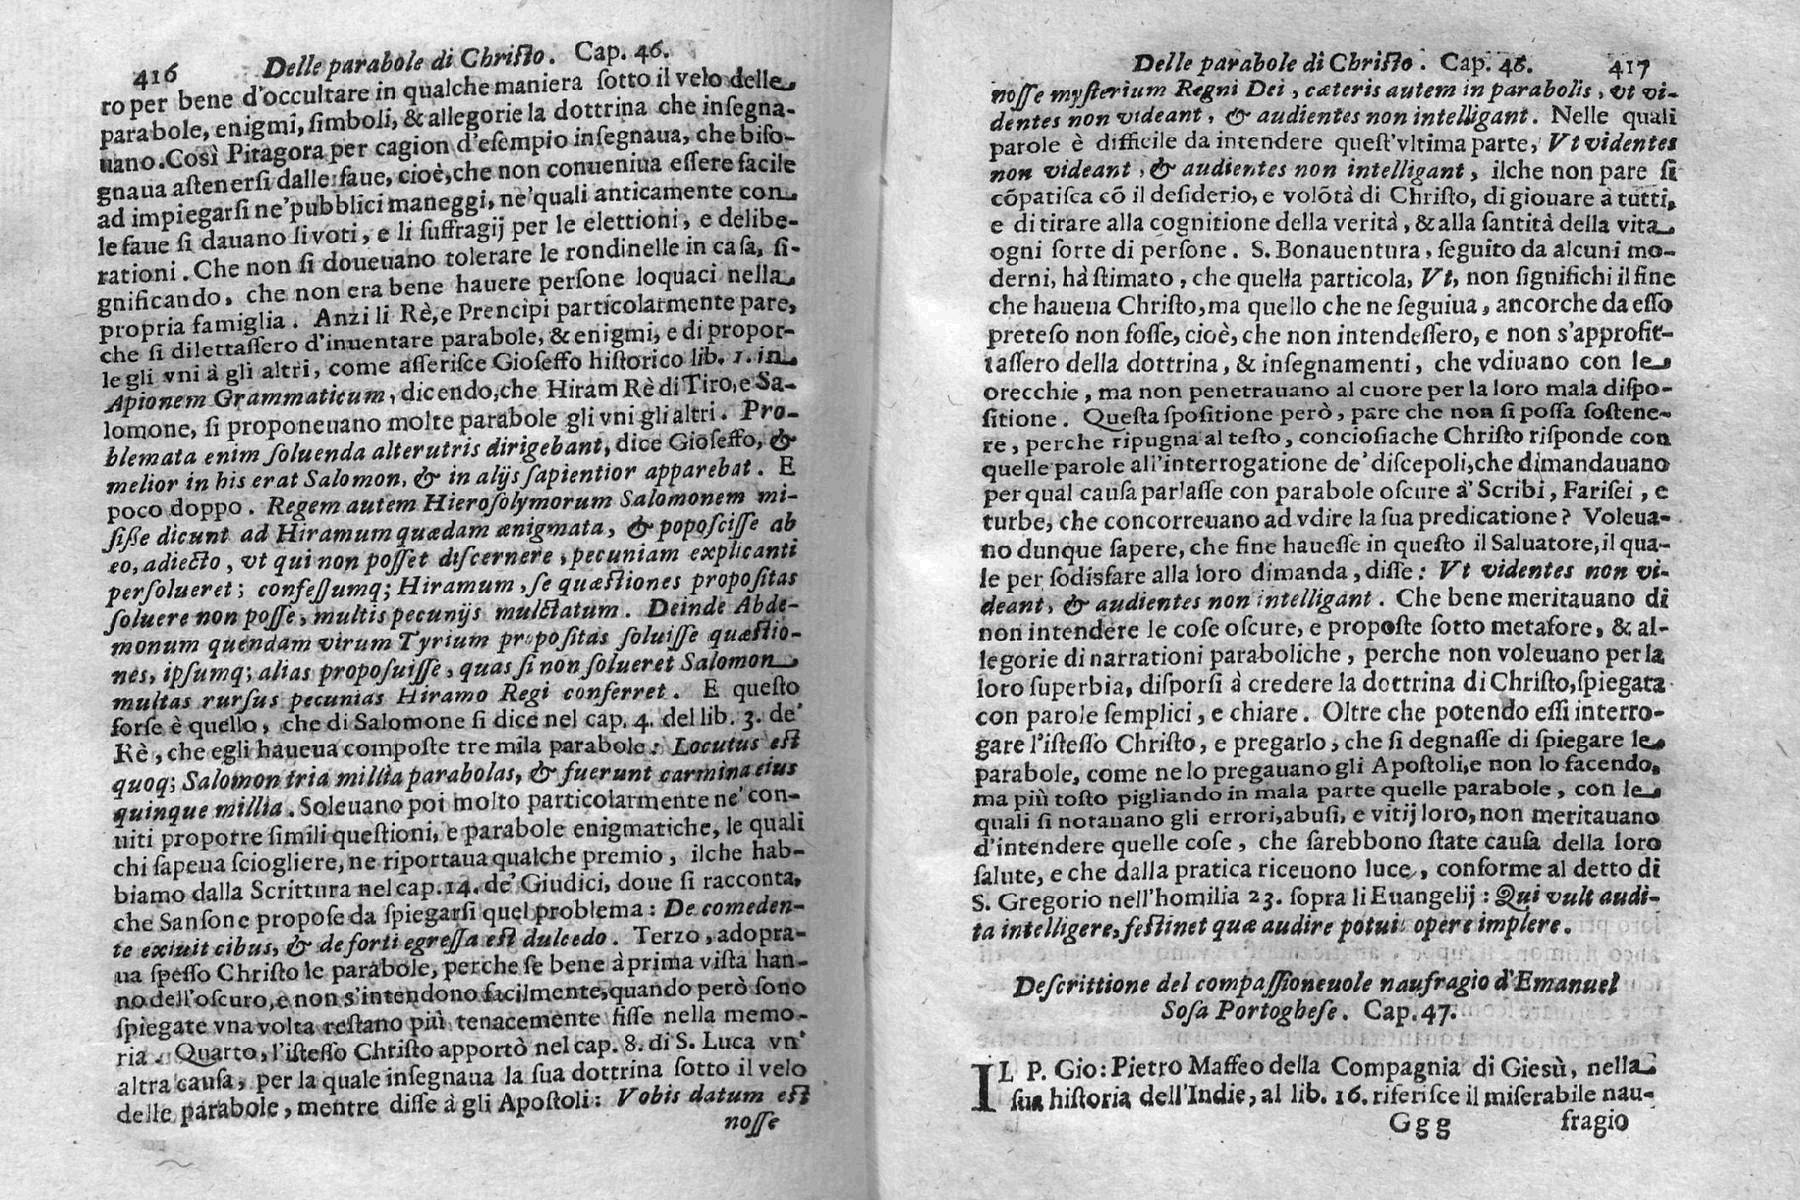 416 Delle parabole di Chriſto. Cap. 46.
ro per bene d'occultare in qualche maniera ſotto il velo delle
parabole, enigmi, ſimboli, & allegorie la dottrina che inſegna-
uano. Così Pitagora per cagion d'eſempio inſegnaua, che biſo-
gnaua aſtenerſi dalle faue, cioè, che non conueniua eſſere facile
ad impiegarſi ne' pubblici maneggi, ne' quali anticamente con
le faue ſi dauano li voti, e li ſuffragij per le elettioni, e delibe-
rationi. Che non ſi doueuano tolerare le rondinelle in caſa, ſi-
gnificando, che non era bene hauere perſone loquaci nella
propria famiglia. Anzi li Rè, e Prencipi particolarmente pare,
che ſi dilettaſſero d'inuentare parabole, & enigmi, e di propor-
le gli vni à gli altri, come aſſeriſce Gioſeffo hiſtorico lib. 1. in
Apionem Grammaticum, dicendo, che Hiram Rè di Tiro, e Sa-
lomone, ſi proponeuano molte parabole gli vni gli altri. Pro-
blemata enim ſoluenda alterutris dirigebant, dice Gioſeffo, &
melior in his erat Salomon, & in alijs ſapientior apparebat. E
poco doppo. Regem autem Hieroſolymorum Salomonem mi-
ſiße dicunt ad Hiramum quædam ænigmata, & popoſciſſe ab
eo, adiecto, vt qui non poſſet diſcernere, pecuniam explicanti
perſolueret; confeſſumq; Hiramum, ſe quæſtiones propoſitas
ſoluere non poſſe, multis pecunijs mulctatum. Deinde Abde-
monum quendam virum Tyrium propoſitas ſoluiſſe quæſtio-
nes, ipſumq; alias propoſuiſſe, quas ſi non ſolueret Salomon
multas rurſus pecunias Hiramo Regi conferret. E queſto
forſe è quello, che di Salomone ſi dice nel cap. 4. del lib. 3. de'
Rè, che egli haueua compoſte tre mila parabole: Locutus eſt
quoq; Salomon tria millia parabolas, & fuerunt carmina eius
quinque millia. Soleuano poi molto particolarmente ne' con-
uiti proporre ſimili queſtioni, e parabole enigmatiche, le quali
chi ſapeua ſciogliere, ne riportaua qualche premio, ilche hab-
biamo dalla Scrittura nel cap. 14. de' Giudici, doue ſi racconta,
che Sanſone propoſe da ſpiegarſi quel problema: De comeden-
te exiuit cibus, & de forti egreſſa eſt dulcedo. Terzo, adopra-
ua ſpeſſo Chriſto le parabole, perche ſe bene à prima viſta han-
no dell'oſcuro, e non s'intendono facilmente, quando però ſono
ſpiegate vna volta reſtano più tenacemente fiſſe nella memo-
ria. Quarto, l'iſteſſo Chriſto apportò nel cap. 8. di S. Luca vn'
altra cauſa, per la quale inſegnaua la ſua dottrina ſotto il velo
delle parabole, mentre diſſe à gli Apoſtoli: Vobis datum eſt
noſſe
Delle parabole di Chriſto. Cap. 46. 417
noſſe myſterium Regni Dei, cæteris autem in parabolis, vt vi-
dentes non videant, & audientes non intelligant. Nelle quali
parole è difficile da intendere queſt'vltima parte, Vt videntes
non videant, & audientes non intelligant, ilche non pare ſi
cõpatiſca cõ il deſiderio, e volõtà di Chriſto, di giouare à tutti,
e di tirare alla cognitione della verità, & alla ſantità della vita
ogni ſorte di perſone. S. Bonauentura, ſeguito da alcuni mo-
derni, hà ſtimato, che quella particola, Vt, non ſignifichi il fine
che haueua Chriſto, ma quello che ne ſeguiua, ancorche da eſſo
preteſo non foſſe, cioè, che non intendeſſero, e non s'approfit-
taſſero della dottrina, & inſegnamenti, che vdiuano con le
orecchie, ma non penetrauano al cuore per la loro mala diſpo-
ſitione. Queſta ſpoſitione però, pare che non ſi poſſa ſoſtene-
re, perche ripugna al teſto, concioſiache Chriſto riſponde con
quelle parole all'interrogatione de' diſcepoli, che dimandauano
per qual cauſa parlaſſe con parabole oſcure a' Scribi, Fariſei, e
turbe, che concorreuano ad vdire la ſua predicatione? Voleua-
no dunque ſapere, che fine haueſſe in queſto il Saluatore, il qua-
le per ſodisfare alla loro dimanda, diſſe: Vt videntes non vi-
deant, & audientes non intelligant. Che bene meritauano di
non intendere le coſe oſcure, e propoſte ſotto metafore, & al-
legorie di narrationi paraboliche, perche non voleuano per la
loro ſuperbia, diſporſi à credere la dottrina di Chriſto, ſpiegata
con parole ſemplici, e chiare. Oltre che potendo eſſi interro-
gare l'iſteſſo Chriſto, e pregarlo, che ſi degnaſſe di ſpiegare le
parabole, come ne lo pregauano gli Apoſtoli, e non lo facendo,
ma più toſto pigliando in mala parte quelle parabole, con le
quali ſi notauano gli errori, abuſi, e vitij loro, non meritauano
d'intendere quelle coſe, che ſarebbono ſtate cauſa della loro
ſalute, e che dalla pratica riceuono luce, conforme al detto di
S. Gregorio nell'homilia 23. ſopra li Euangelij: Qui vult audi-
ta intelligere, feſtinet quæ audire potuit opere implere.
Deſcrittione del compaſſioneuole naufragio d'Emanuel
Soſa Portogheſe. Cap. 47.
IL P. Gio: Pietro Maffeo della Compagnia di Gieſù, nella
ſua hiſtoria dell'Indie, al lib. 16. riferiſce il miſerabile nau-
Ggg fragio